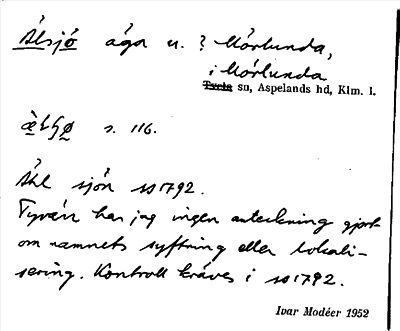 Ålsjö äga u. ? Mörlunda,
i Mörlunda
Tveta sn, Aspelands hd, Klm. l.
s. 116.
Åhl sjön ss 1792.
Tyvärr har jag ingen anteckning gjort
om namnets syftning eller lokali-
sering. Kontroll kräves i ss 1792.
Ivar Modéer 1952